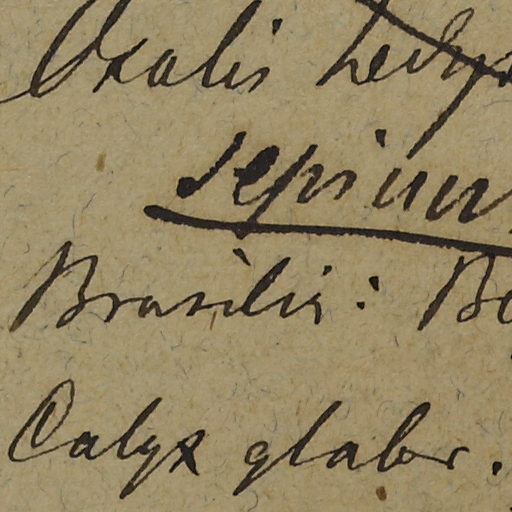 Oxalis
sepium
Brasilia: B
Calyx glabr.